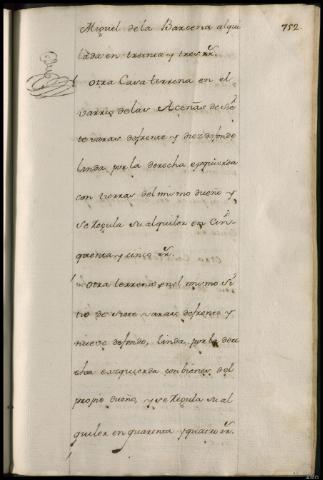 Miguel de la Barcena alqui
752.
lada en treinta y tres rr.
Otra Casa terrena en el
varrio de las Aceñas de sie
te varas de frente y diez de fondo
linda por la derecha e yzquierda
con tierras del mismo dueño y
se regula su alquiler en cin
quenta y cinco rr.
otra terrena en el mismo si
tio de siete varas de frente y
nueve de fondo, linda por la dere
cha e yzquierda con bienes del
propio dueño, y se regula su al
quiler en quarenta y quatro rr.